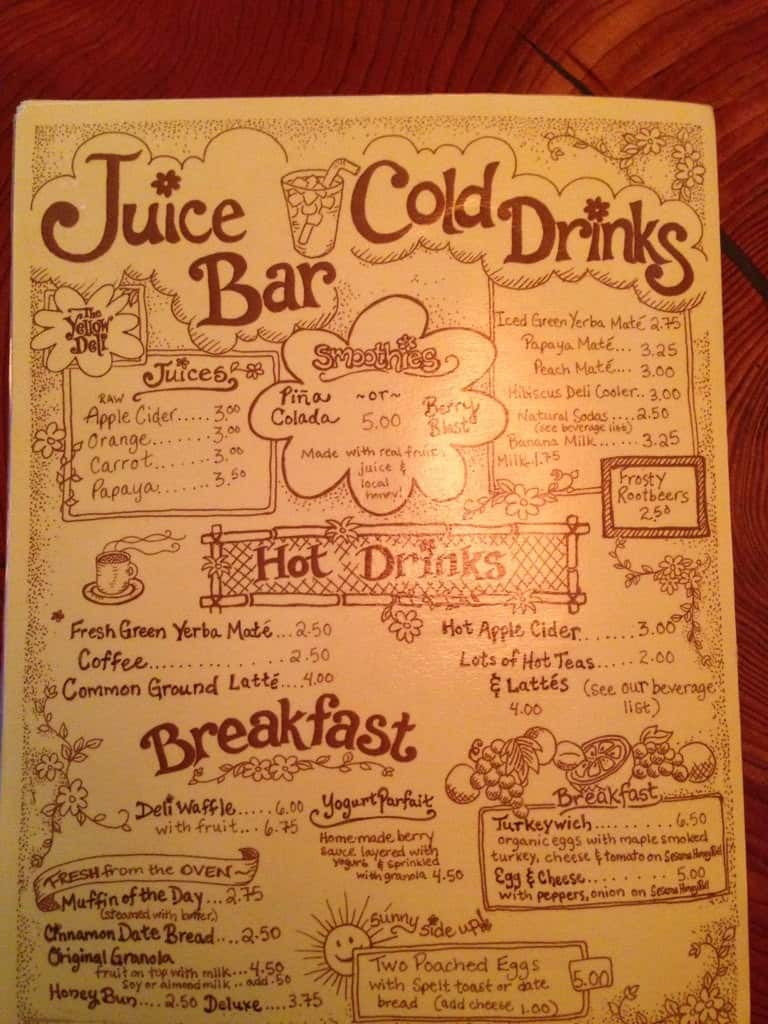 Juice Bar
Cold Drinks
The Yellow Deli
Juices
RAW
Apple Cider..... 3.00
Orange....... 3.00
Carrot....... 3.00
Papaya....... 3.50
Smoothies
Piña Colada
~or~
5.00
Berry Blast
Made with real fruit
juice &
local
honey!
Iced Green Yerba Maté 2.75
Papaya Maté... 3.25
Peach Maté... 3.00
Hibiscus Deli Cooler.. 3.00
Natural Sodas .... 2.50
(see beverage list)
Banana Milk...... 3.25
Milk..1.75
Frosty
Rootbeers
2.50
Hot Drinks
Fresh Green Yerba Maté ... 2.50
Coffee............. 2.50
Common Ground Latté.... 4.00
Hot Apple Cider....... 3.00
Lots of Hot Teas..... 2.00
& Lattés (see our beverage
4.00 list)
Breakfast
Deli Waffle..... 6.00
with fruit... 6.75
Yogurt Parfait
Homemade berry
sauce layered with
yogurt & sprinkled
with granola 4.50
Breakfast
Turkeywich......... 6.50
organic eggs with maple smoked
turkey, cheese & tomato on Sesame Honey Roll
Egg & Cheese......... 5.00
with peppers, onion on Sesame Honey Roll
FRESH from the OVEN~
Muffin of the Day ... 2.75
(steamed with butter)
Cinnamon Date Bread.... 2.50
Original Granola
fruit on top with milk... 4.50
soy or almond milk .. add .50
Honey Bun.... 2.50 Deluxe.... 3.75
sunny side up!
Two Poached Eggs
with Spelt toast or date
bread (add cheese 1.00)
5.00